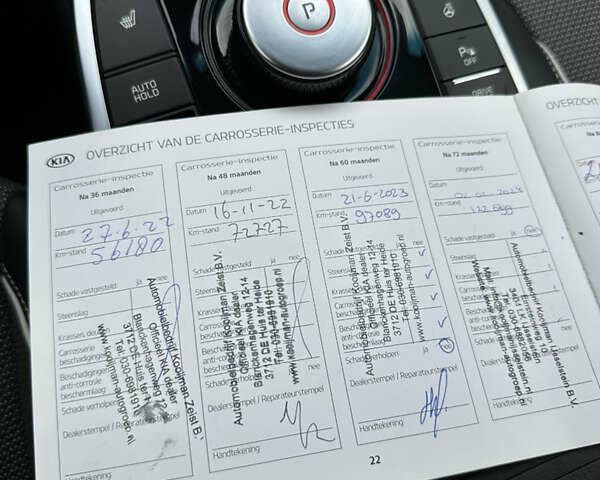 P
P
OFF
AUTO
HOLD
DRIVE
KIA
OVERZICHT VAN DE CARROSSERIE-INSPECTIES
OVERZICHT
Carrosserie-inspectie
Na 36 maanden
Uitgevoerd
Datum 27.6.22
Km-stand 56180
Schade vastgesteld ja nee
Steenslag
Krassen/deuken
Carrosserie
Beschadiging
Beschadiging
anti-corrosie
beschermlaag
Schade verholpen
Dealerstempel / Reparateurstempel
Handtekening
Automobielbedrijf Kooijman Zeist B.V.
Officieel KIA dealer
Blanckenhagenweg 12-14
3712 DE Huis ter Heide
Tel. 030-6981910
www.kooijman-autogroep.nl
Carrosserie-inspectie
Na 48 maanden
Uitgevoerd
Datum 16-11-22
Km-stand 72727
Schade vastgesteld ja nee
Steenslag
Krassen
Carrosserie
Beschadiging
anti-corrosie
beschermlaag
Schade verholpen
Dealerstempel / Reparateurstempel
Handtekening
Automobielbedrijf Kooijman Zeist B.V.
Officieel KIA dealer
Blanckenhagenweg 12-14
3712 DE Huis ter Heide
Tel. 030-6981910
www.kooijman-autogroep.nl
Carrosserie-inspectie
Na 60 maanden
Uitgevoerd
Datum 21-6-2023
Km-stand 97089
Schade vastgesteld ja nee
Steenslag
Krassen
Carrosserie
Beschadiging
anti-corrosie
beschermlaag
Schade verholpen
Dealerstempel / Reparateurstempel
Handtekening
Automobielbedrijf Kooijman Zeist B.V.
Officieel KIA dealer
Blanckenhagenweg 12-14
3712 DE Huis ter Heide
Tel. 030-6981910
www.kooijman-autogroep.nl
Carrosserie-inspectie
Na 72 maanden
Uitgevoerd
Datum
Km-stand
Schade vastgesteld ja nee
Steenslag
Krassen
Carrosserie
Beschadiging
anti-corrosie
beschermlaag
Schade verholpen
Dealerstempel / Reparateurstempel
Handtekening
Automobielbedrijf Kooijman IJsselstein B.V.
22